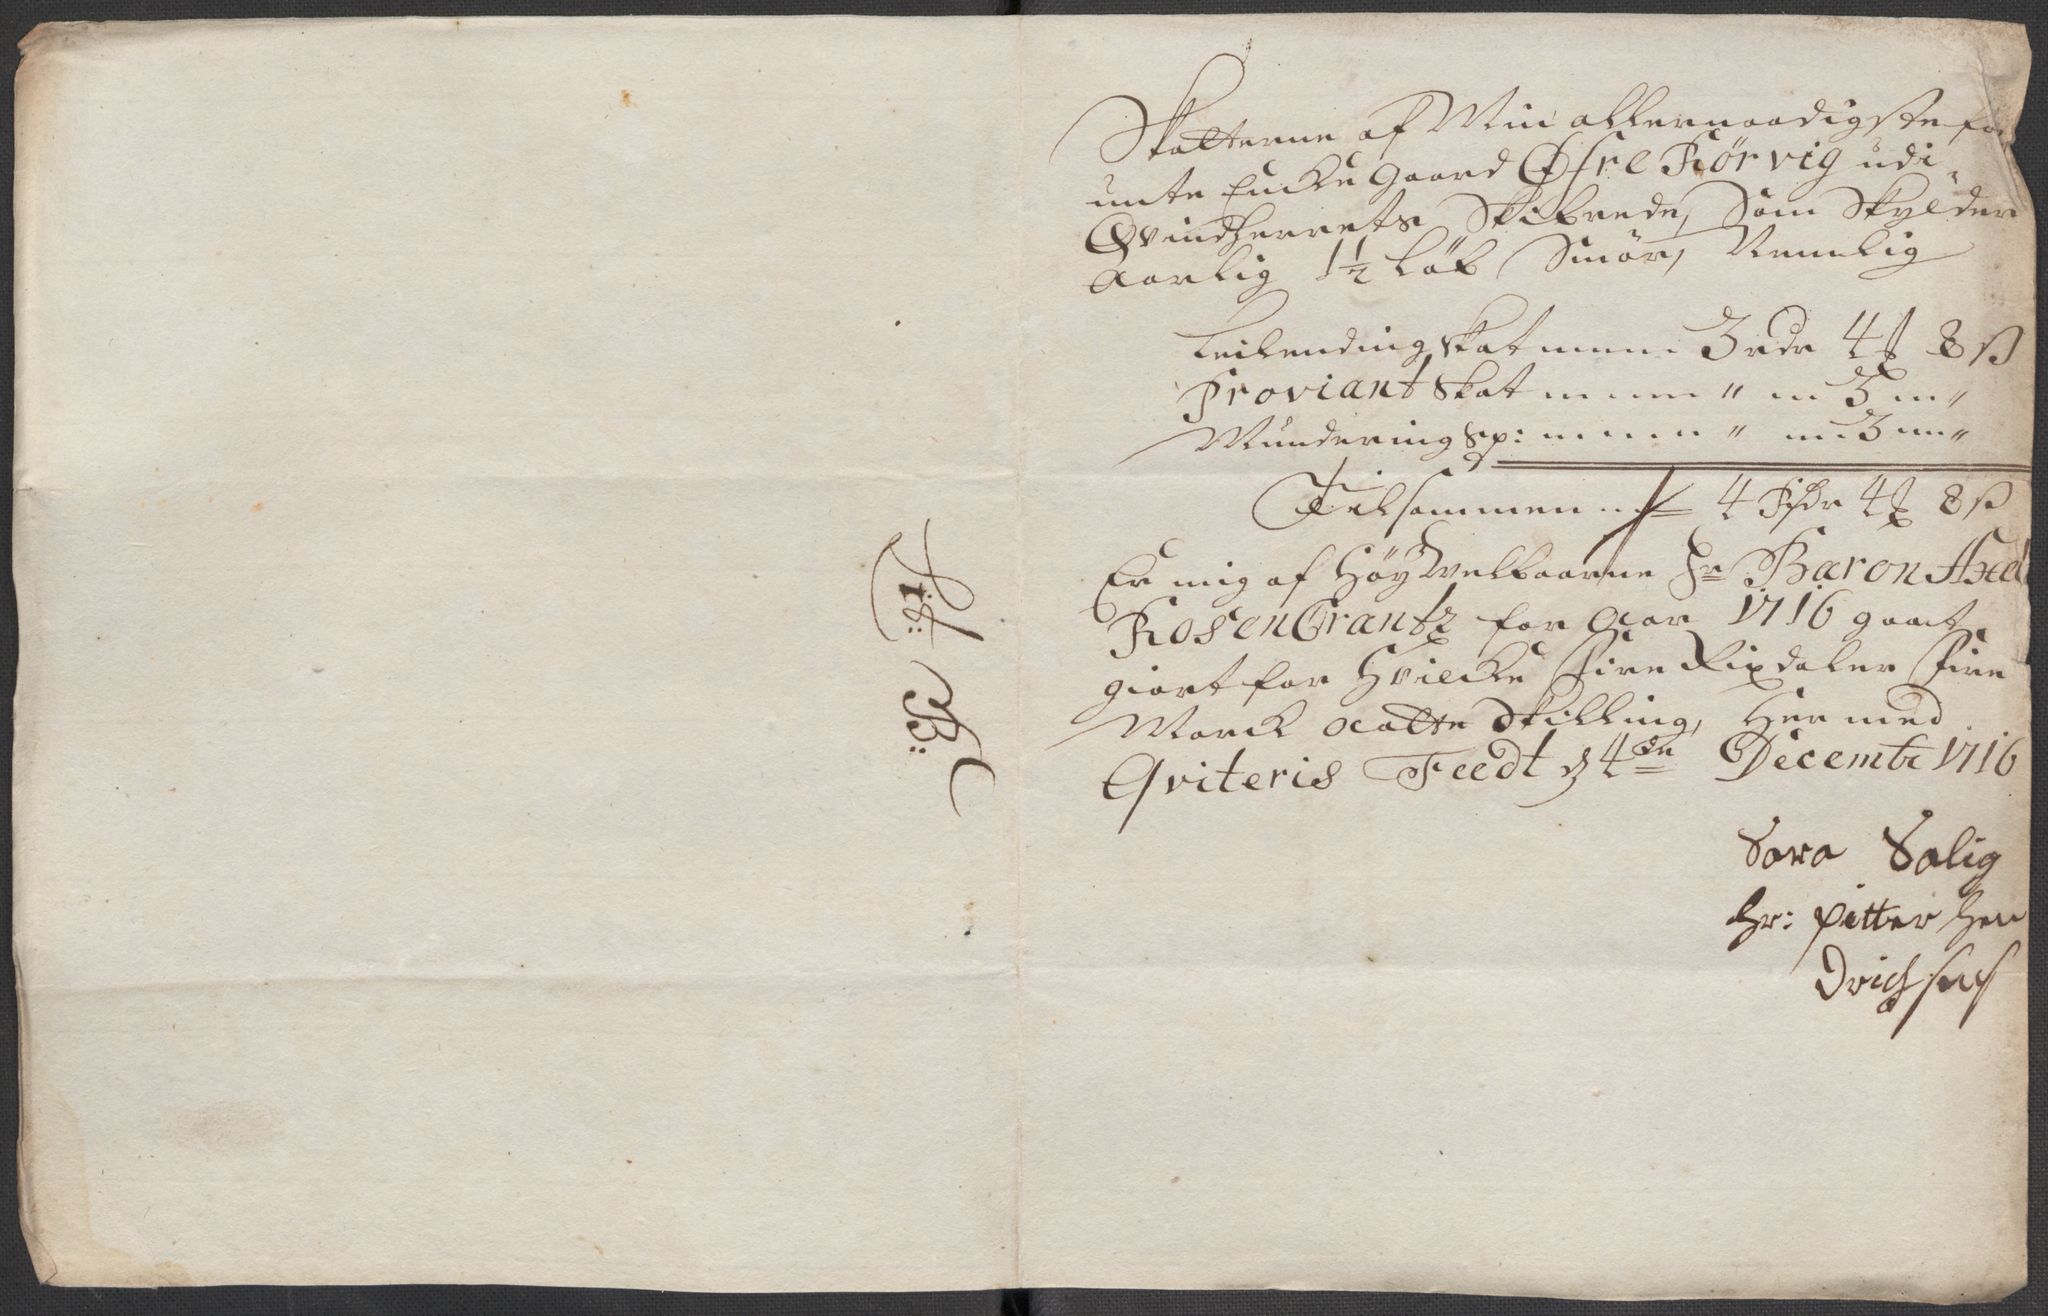 Skatterne af Min allernaadigste for
unte Encke Gaard Øfre Rörvig udi
Qvindherrets Skibrede, Som Skylder
Aarlig 1½ Løb Smör, Nemlig
Leilending Skat 3 rdr 4 8 ß
Proviant Skat " 3 "
Mundering Sp: " 3 "
Tilsammen 4 Rdr 4 8 ß
Er mig af Höy Welbaarne Hr Baron Axel
RosenCrantz for Aar 1716 gott
giort for Hvilcke Fire Rixdaler Fire
Marck otte Skilling, Her med
Qviteris Teedt d 4de Decembr 1716
Sara Salig
hr: pitter hen
drichsens